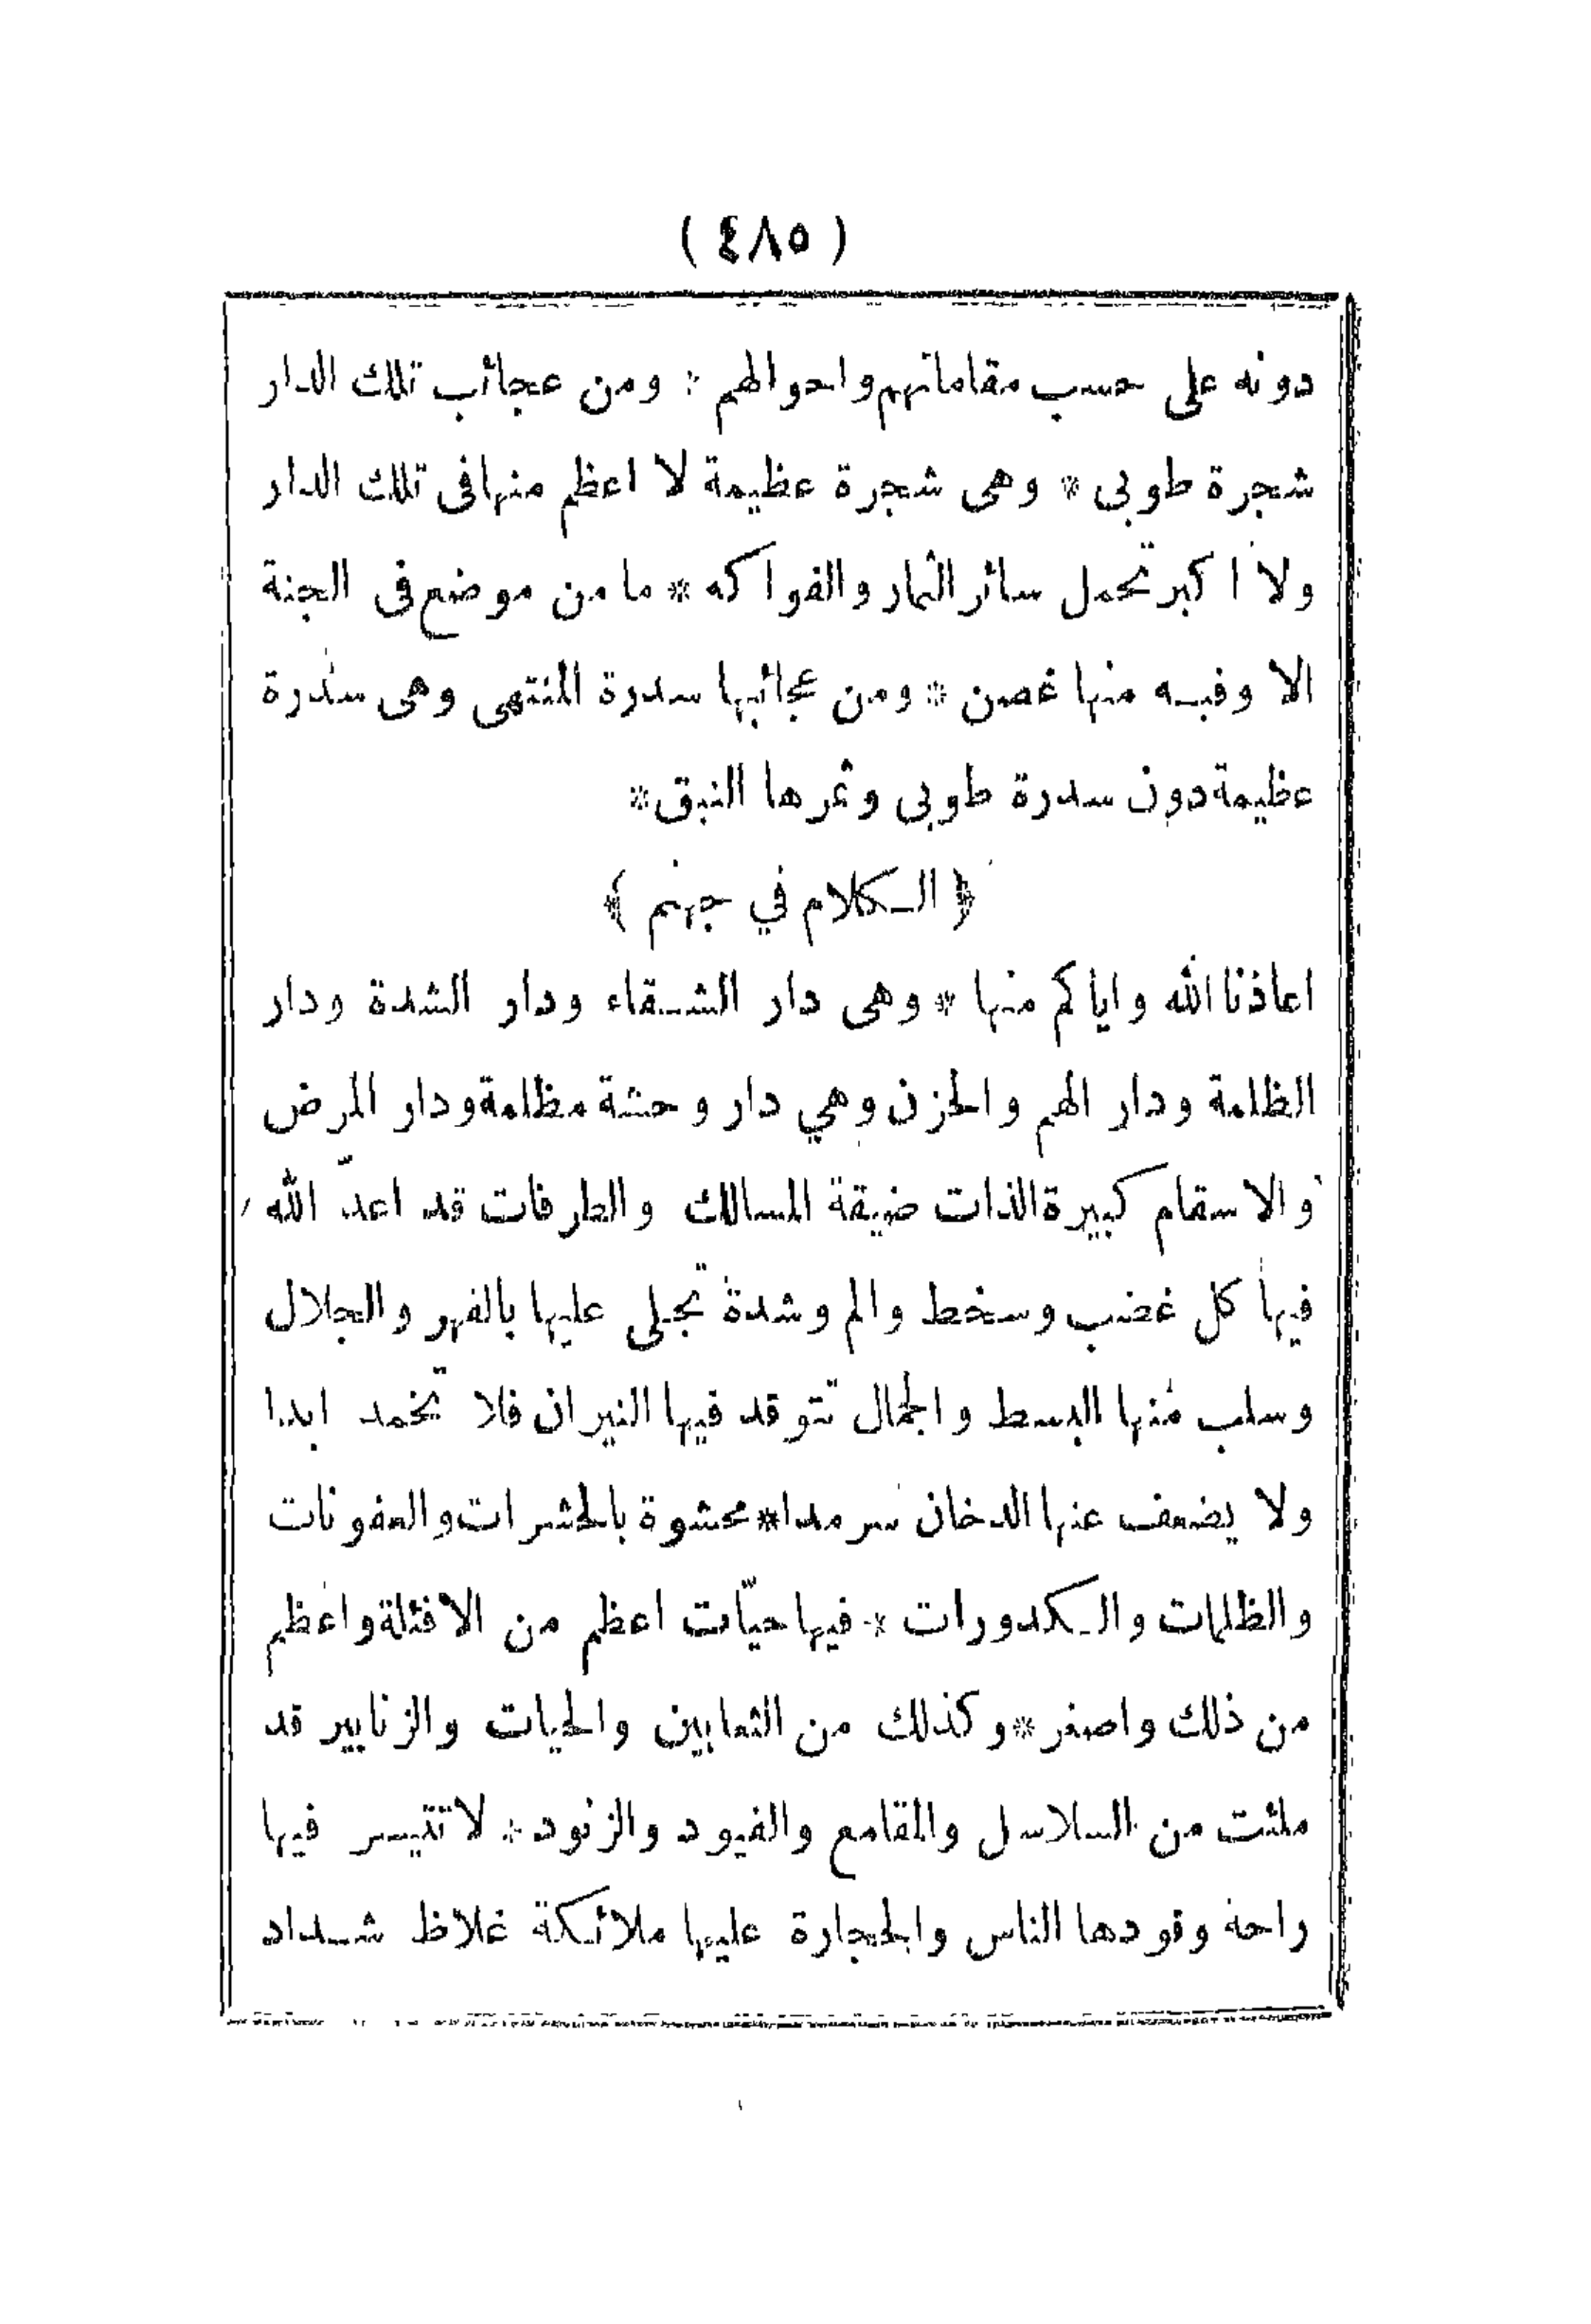 ( ٤٨٥ )
دونه على حسب مقاماتهم واحوالهم * ومن عجائب تلك الدار
شجرة طوبى * وهى شجرة عظيمة لا اعظم منها فى تلك الدار
ولا اكبر تحمل سائر الثمار والفواكه * ما من موضع فى الجنة
الا وفيه منها غصن * ومن عجائبها سدرة المنتهى وهى سدرة
عظيمة دون سدرة طوبى وثمرها النبق *
﴿ الكلام في جهنم ﴾
اعاذنا الله واياكم منها * وهى دار الشقاء ودار الشدة ودار
الظلمة ودار الهم والحزن وهي دار وحشة مظلمة ودار المرض
والاسقام كبيرة الذات ضيقة المسالك والطرفات قد اعدّ الله
فيها كل غضب وسخط والم وشدة تجلى عليها بالقهر والجلال
وسلب منها البسط والجمال تتوقد فيها النيران فلا تخمد ابدا
ولا يضعف عنها الدخان سرمدا * محشوة بالحشرات والعفونات
والظلمات والكدورات * فيها حيّات اعظم من الافئلة واعظم
من ذلك واصغر * وكذلك من الثعابين والحيات والزنابير قد
ملئت من السلاسل والمقامع والقيود والزنود * لا تتيسر فيها
راحة وقودها الناس والحجارة عليها ملائكة غلاظ شداد